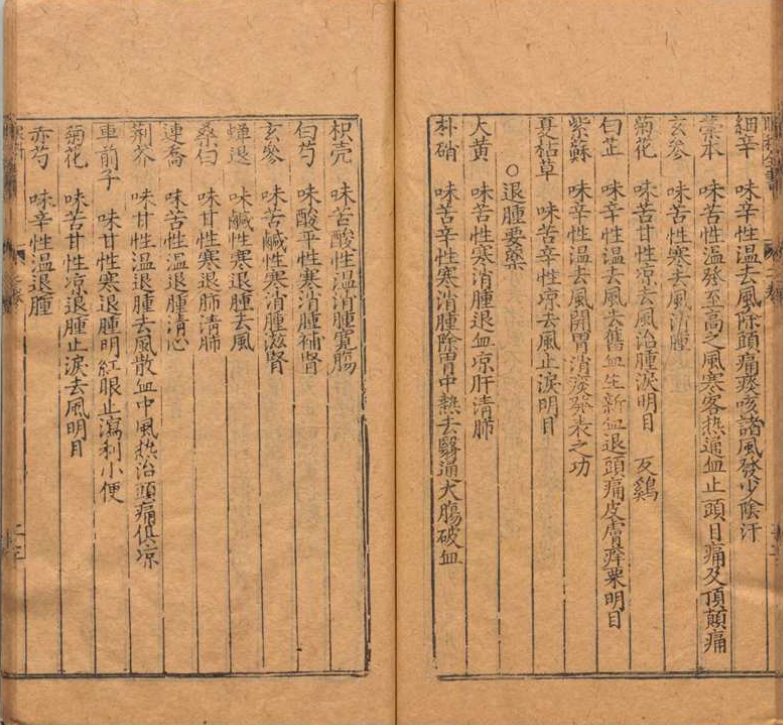 細辛 味辛性温去風除頭痛痰咳諸風發少陰汗
藁本 味苦性温發至高之風寒客热通血止頭目痛及頂顛痛
玄参 味苦性寒去風消腫
菊花 味苦甘性凉去風治腫淚明目 反鷄
白芷 味辛性温去風去舊血生新血退頭痛皮膚痒粟明目
紫蘇 味辛性温去風開胃消痰發表之功
夏枯草 味苦辛性凉去風止淚明目
○退腫要藥
大黄 味苦性寒消腫退血凉肝清肺
朴硝 味苦辛性寒消腫除胃中熱去翳通大膓破血
枳壳 味苦酸性温消腫寛膓
白芍 味酸平性寒消腫補腎
玄參 味苦鹹性寒消腫滋腎
蟬退 味鹹性寒退腫去風
桑白 味甘性寒退腫清肺
連喬 味苦性温退腫清心
荆芥 味甘性温退腫去風散血中風热治頭痛俱凉
車前子 味甘性寒退腫明紅眼止瀉利小便
菊花 味苦甘性凉退腫止淚去風明目
赤芍 味辛性温退腫